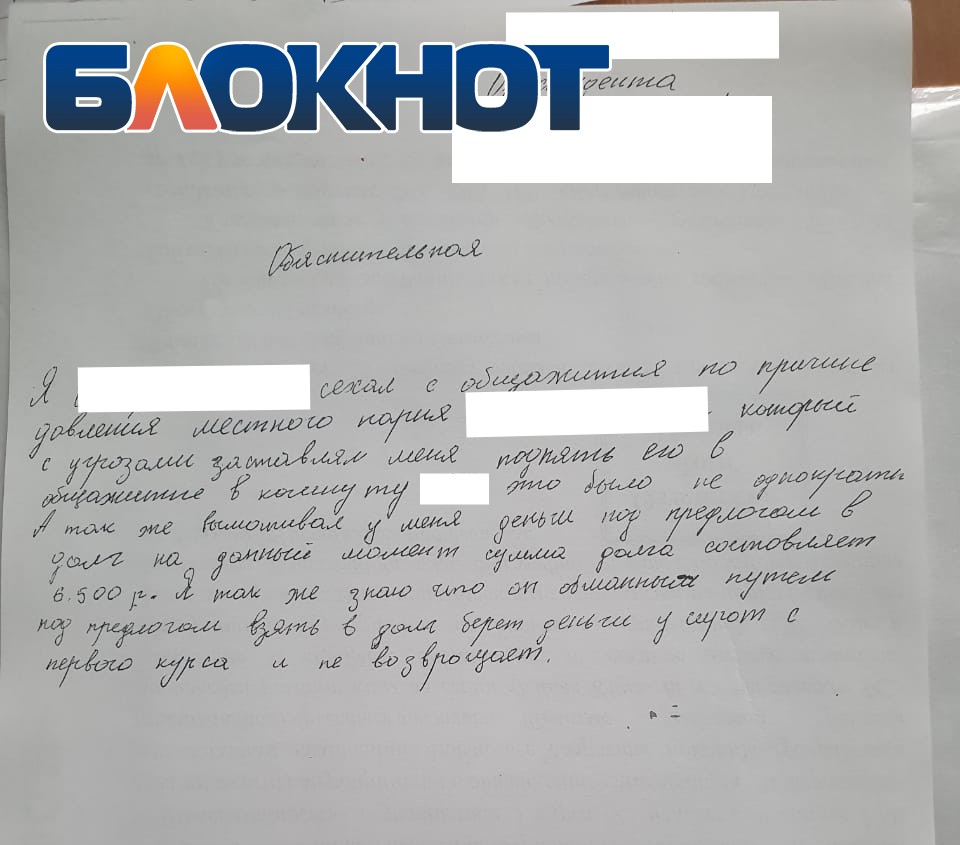 БЛОКНОТ
Обяснительная
Я сехал с общажития по причине
давления местного парня который
с угрозами заставлял меня поднять его в
общажитие в комнуту это было не однократн
А так же вымаживал у меня деньги под предлогам в
долг на данный момент сумма долга состовляет
6.500 р. Я так же знаю что он обманным путем
под предлогам взять в долг берет деньги у сирот с
первого курса и не возврощает.